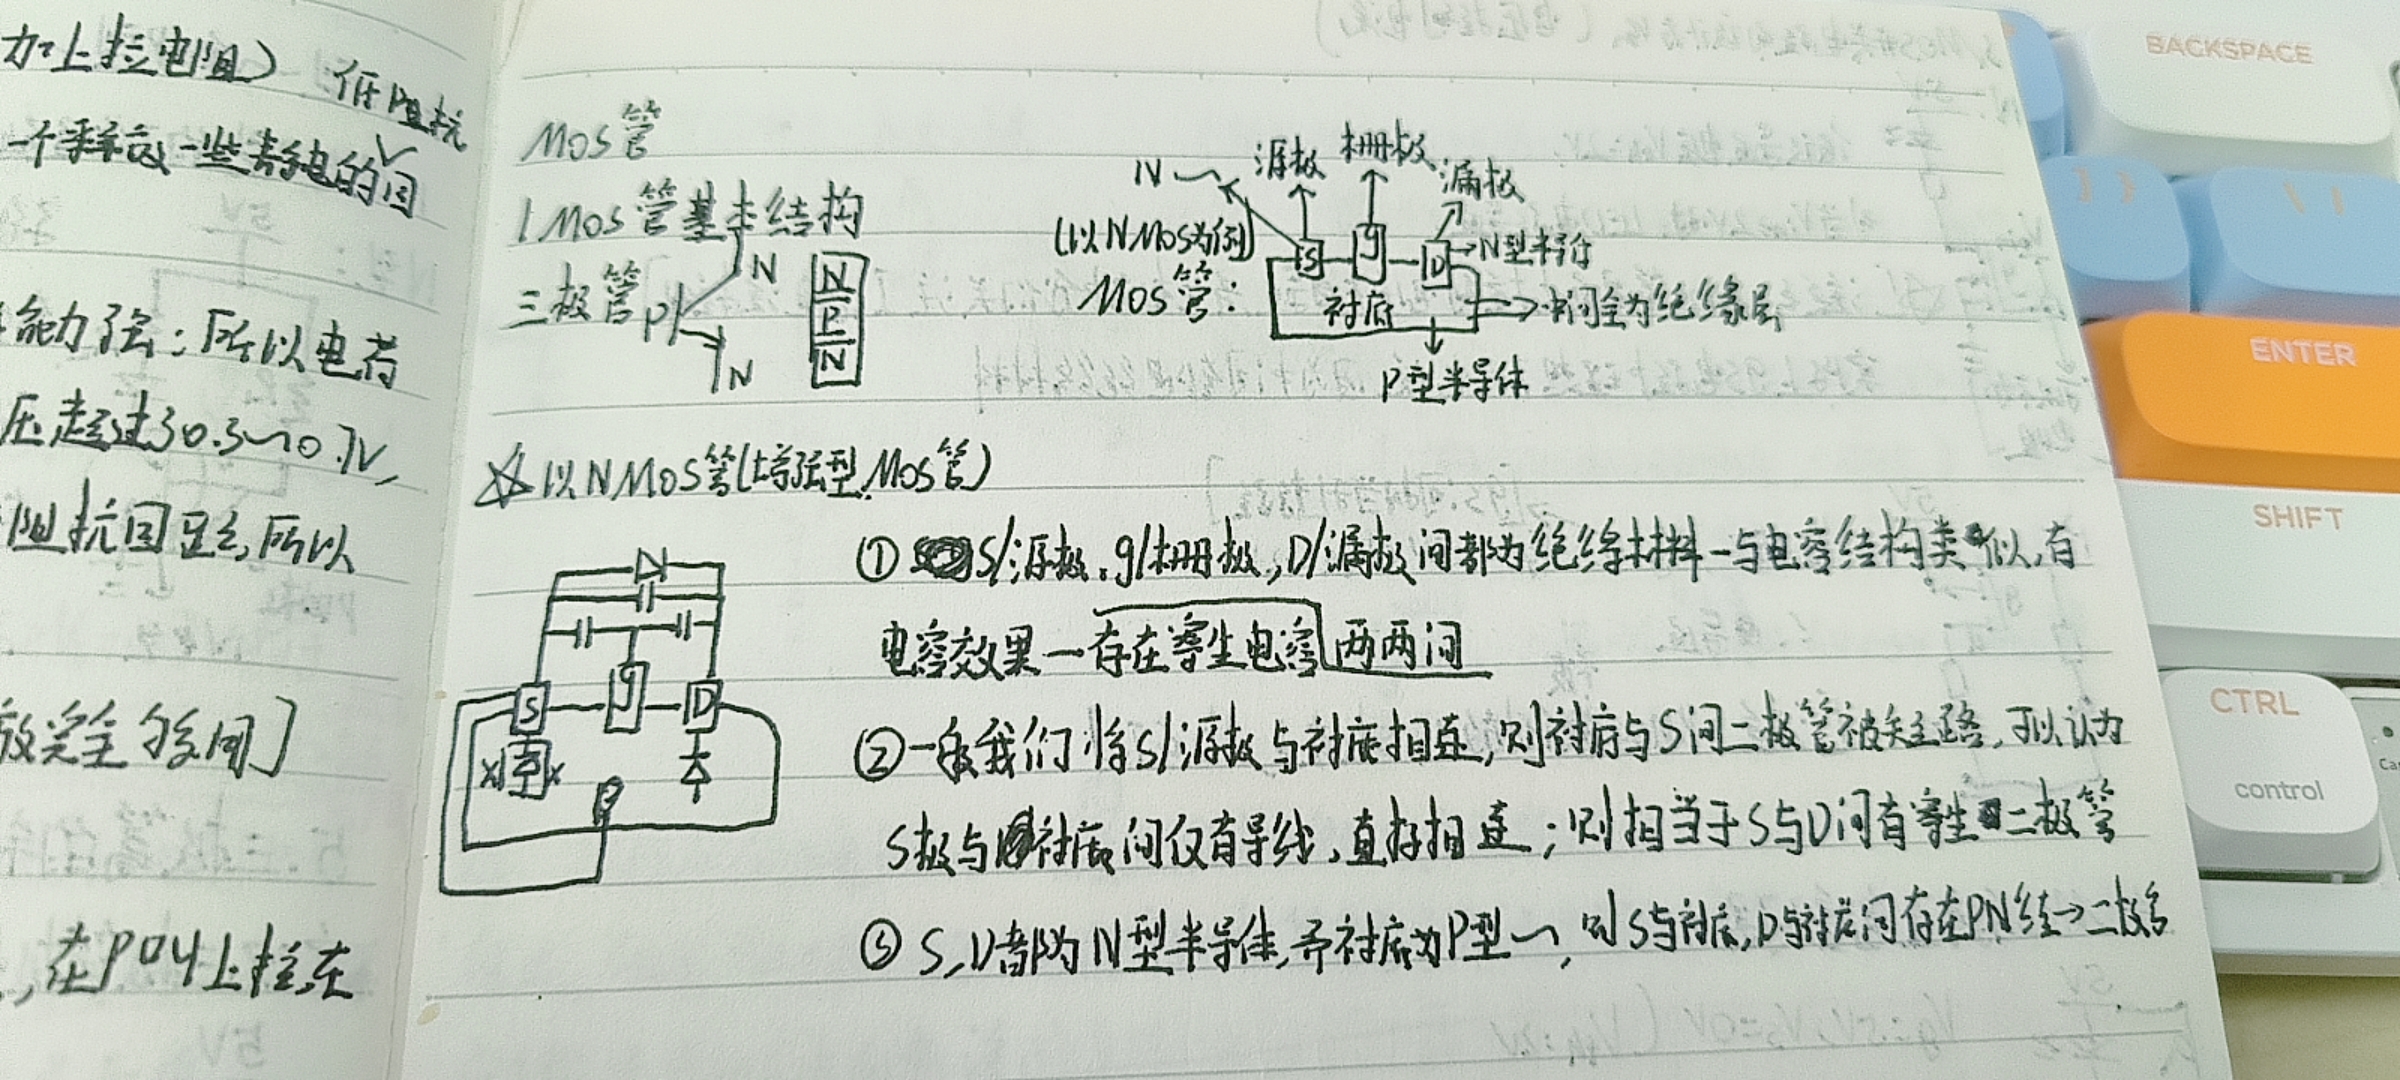 加上拉电阻)
低阻抗
一个释放一些静电的回
能力强:所以电荷
压超过30.3~0.7V,
阻抗回路,所以
放完全够用]
,在P04上拉,在
MOS管
1 MOS管基本结构
三极管 P N N
N P N
(以NMOS为例)
MOS管:
N~
源极 栅极 漏极
S g D
→N型半导
衬底
中间全为绝缘层
P型半导体
☆以NMOS管(增强型MOS管)
S g D
①S/源极.g/栅极,D/漏极间都为绝缘材料-与电容结构类似,有
电容效果-存在寄生电容 两两间
②一般我们将S/源极与衬底相连,则衬底与S间二极管被短路,可以认为
S极与衬底间仅有导线,直接相连;则相当于S与D间有寄生二极管
③S,D都为N型半导体,而衬底为P型~,则S与衬底,D与衬底间存在PN结→二极管
BACKSPACE
} ]
\ |
ENTER
SHIFT
CTRL
control